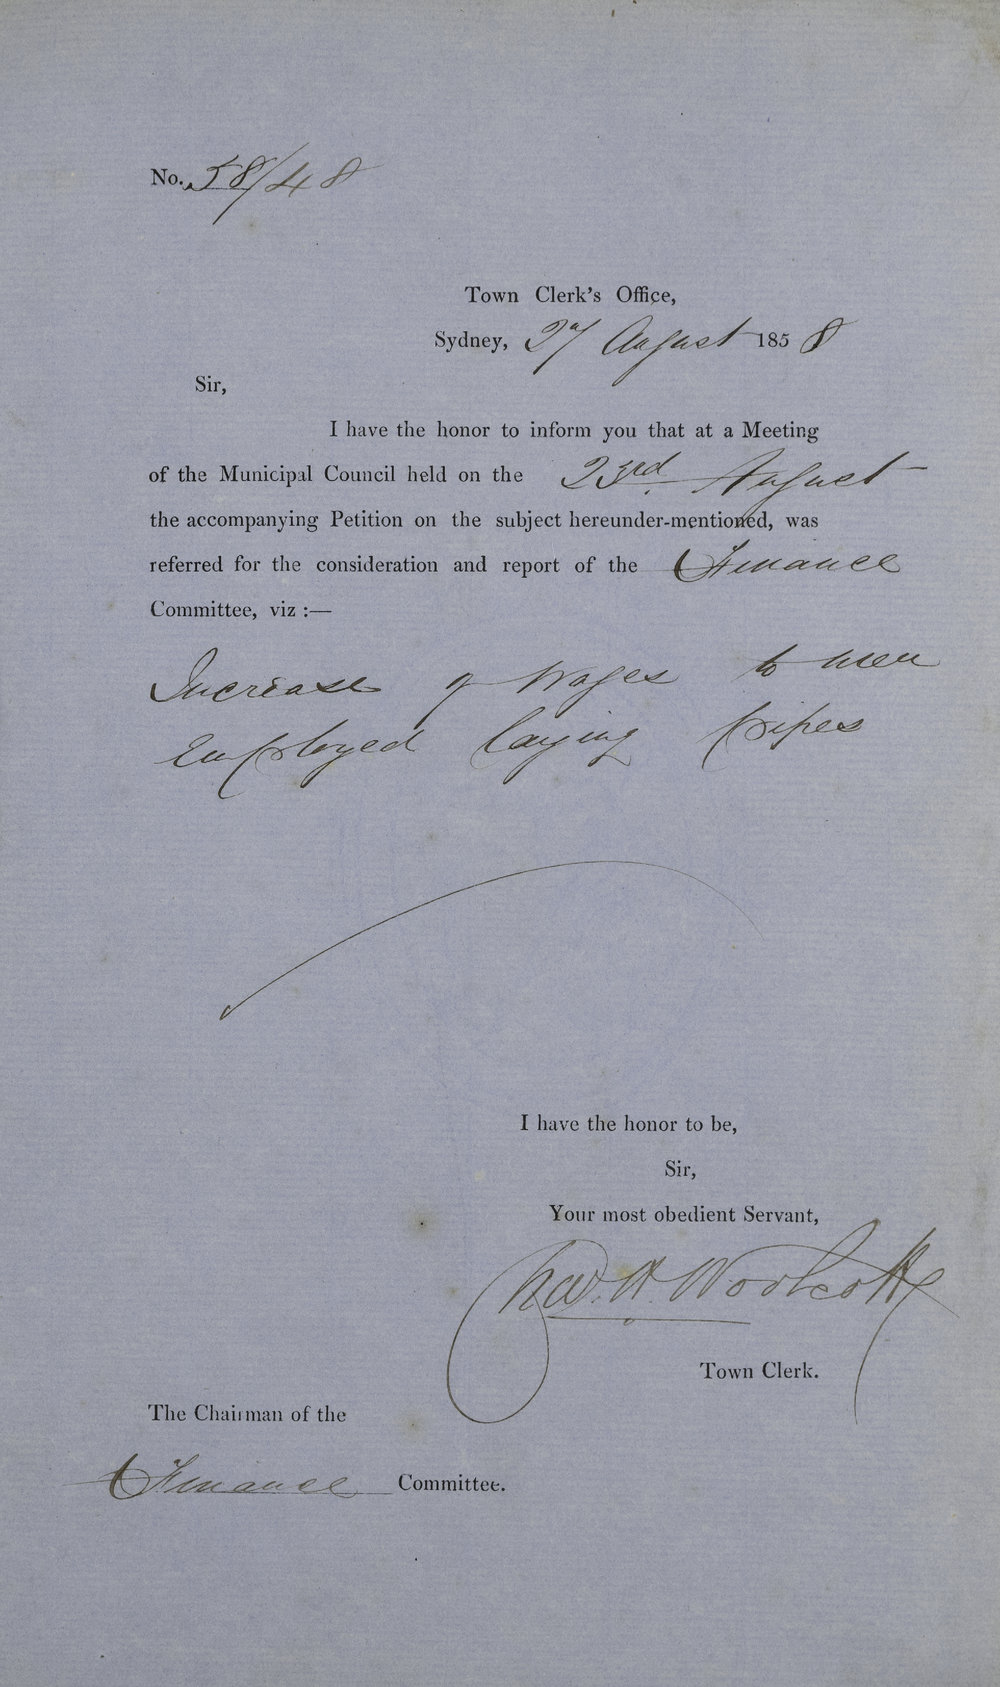 No. 58/48
Town Clerk's Office,
Sydney, 27 August 1858
Sir,
I have the honor to inform you that at a Meeting
of the Municipal Council held on the 23rd August
the accompanying Petition on the subject hereunder-mentioned, was
referred for the consideration and report of the Finance
Committee, viz :—
Increase of Wages to men
Employed laying pipes
I have the honor to be,
Sir,
Your most obedient Servant,
Chas. H. Woolcott
Town Clerk.
The Chairman of the
Finance Committee.